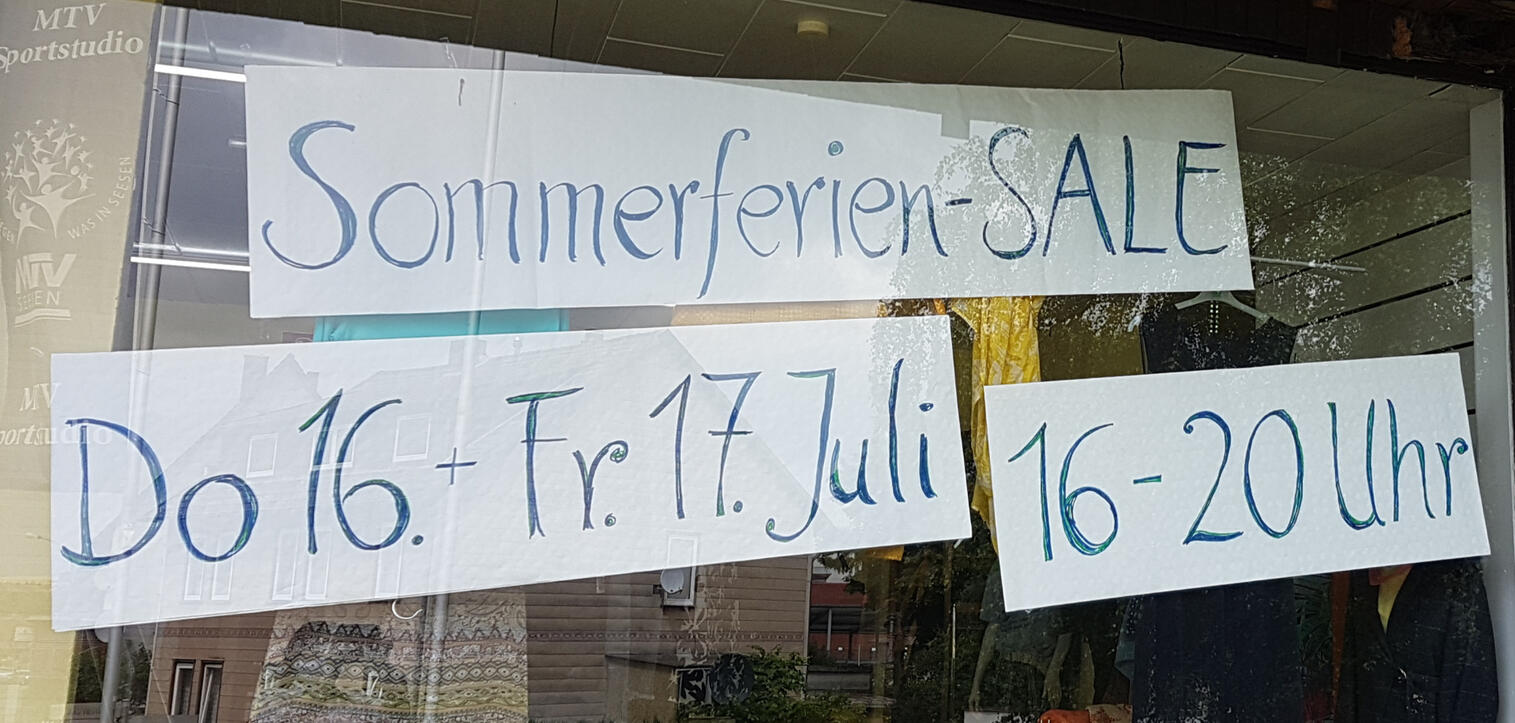 MTV
Sportstudio
WAS IN SEESEN
MTV
Sommerferien-SALE
Do 16. + Fr. 17. Juli
16-20 Uhr